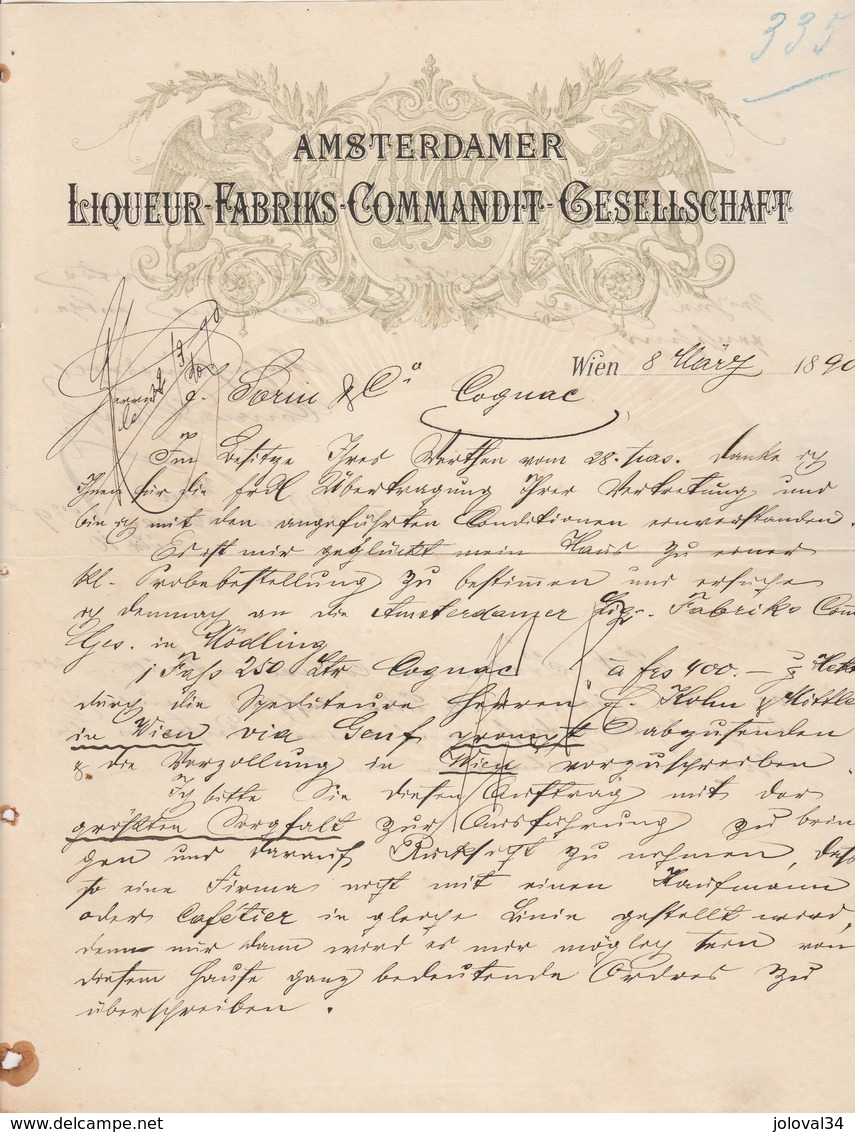 335
AMSTERDAMER
LIQUEUR-FABRIKS-COMMANDIT-GESELLSCHAFT
Wien 8 März 1890
Sorin & Co Cognac
Im Besitze Ihres Werthen vom 28. pas. danke ich
Ihnen für die frdl Übertragung Ihrer Vertretung und
bin ich mit den angeführten Conditionen einverstanden.
Es ist mir geglückt mein Haus zu einer
kl. Probebestellung zu bestimmen und ersuche
ich demnach an die Amsterdamer Liq. Fabriks Com
Ges. in Mödling
1 Faß 250 Ltr Cognac à frs 400.- Hekt
durch die Spediteure Herren Kohn & Mittle
in Wien via Genf prompt abzusenden
& die Verzollung in Wien vorzuschreiben.
Ich bitte Sie diesen Auftrag mit der
größten Sorgfalt zur Ausführung zu brin
gen und darauf Rücksicht zu nehmen, dass
so eine Firma nicht mit einen Kaufmann
oder Cafétier in gleiche Linie gestellt wird,
denn nur dann wird es mir möglich sein von
diesem Hause ganz bedeutende Ordres zu
überschreiben.
delcampe.net
joloval34